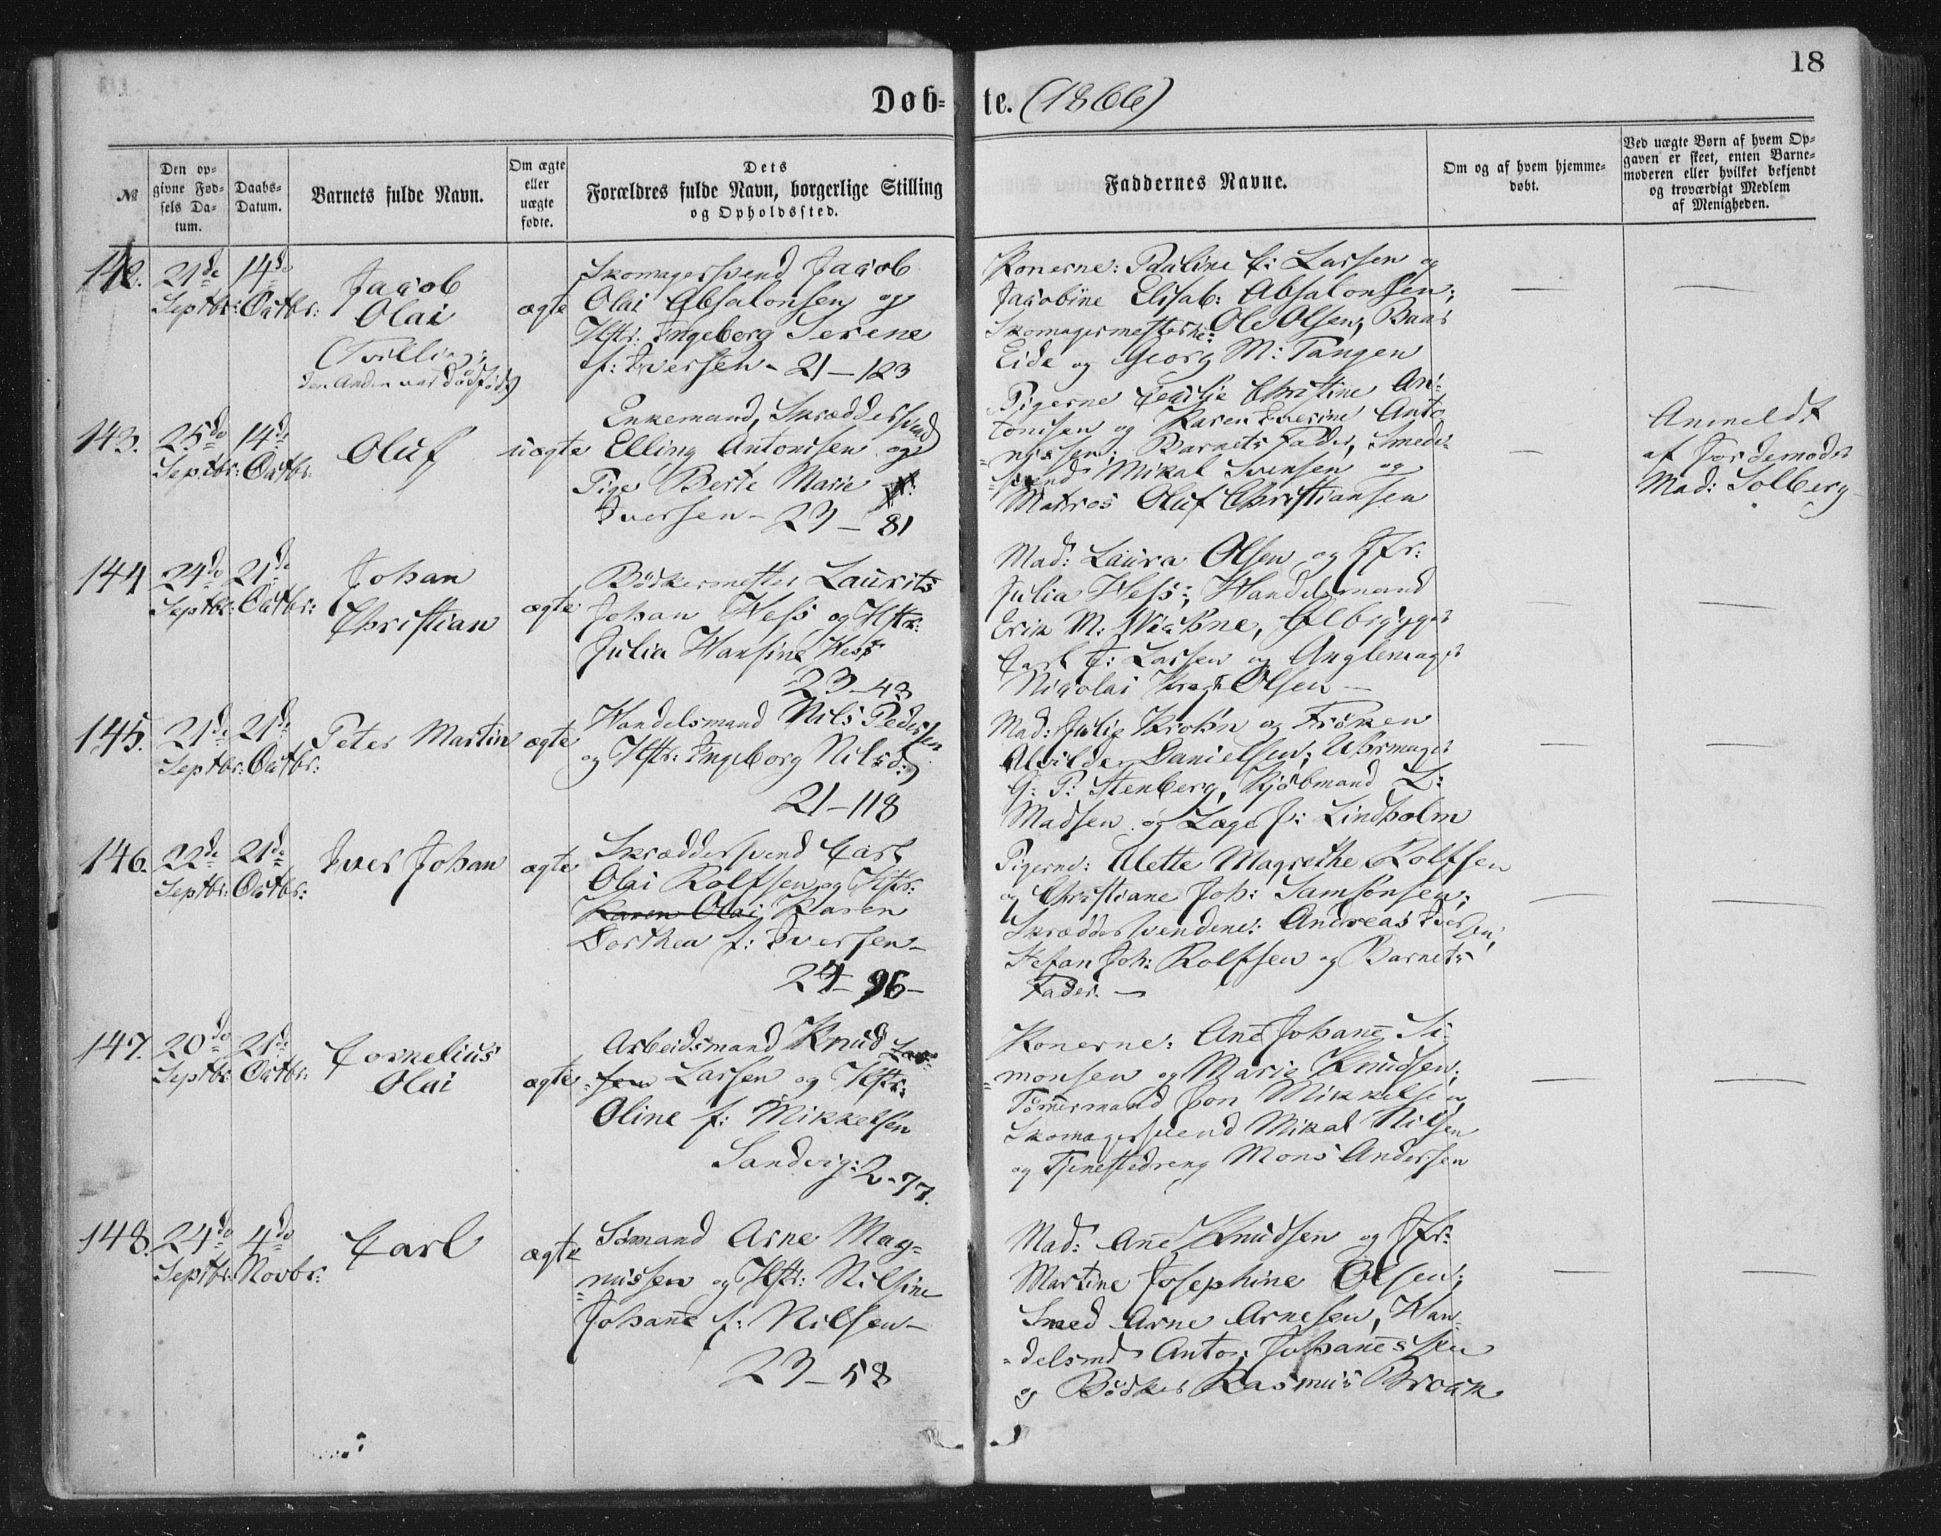 18
Døb-te. (1866)
№
Den opgivne Fødsels Datum.
Daabs-Datum.
Barnets fulde Navn.
Om ægte eller uægte fødte.
Dets Forældres fulde Navn, borgerlige Stilling og Opholdssted.
Faddernes Navne.
Om og af hvem hjemmedøbt.
Ved uægte Børn af hvem Opgaven er skeet, enten Barnemoderen eller hvilket bekjendt og troværdigt Medlem af Menigheden.
142. 21de Septbr: 14de Octbr:
Jacob
Olai
(Tvilling;
den Anden var dødfødt)
ægte
Skomagersvend Jacob
Olai Absalonsen og
Hstr: Ingeborg Serene
f: Iversen - 21 - 123
Konerne: Pauline C: Larsen og
Jacobine Elisab: Absalonsen;
Ole Olsen, Baar
Eide og Georg M: Tangen
143. 25de Septbr: 14de Octbr:
Oluf
uægte
Enkemand, Skræddersvend
Elling Antonisen og
Pige Berte Marie
Iversen - 23 - 81
Pigerne Cecilie Christine An-
tonisen og Karen Iverine Anto
nisen; Barnets Fader, Smede-
svend Mikal Svensen og
Matros Oluf Christiansen
Anmeldt
af Jordemoder
Mad: Solberg
144 24de Septbr: 21de Octbr:
Johan
Christian
ægte
Bødkermester Laurits
Johan Hess og Hstr:
Julia Hansine Hess
23 - 43
Mad: Laura Olsen og Jfr:
Julia Hess; Handelsmand
Erik M: Ølbrygger
Carl F: Larsen og
Nicolai Olsen -
145. 21de Septbr: 21de Octbr:
Peter Martin
ægte
Handelsmand Nils Pedersen
og Hstr: Ingeborg Nilsd:
21 - 118
Mad: Julie Krohn og Frøken
Alvilde Danielsen; Uhrmager
G: P: Stenberg, Kjøbmand L:
Madsen og Læge J: Lindholm
146. 22de Septbr: 21de Octbr:
Iver Johan
ægte
Skræddersvend Carl
Olai Rolfsen og Hstr:
Karen Olai Karen
Dorthea f: Iversen -
24 - 96 -
Pigerne: Alette Magrethe Rolfsen
og Christiane Joh: Samsonsen;
Skræddersvendene: Andreas Iversen,
Stefan Joh: Rolfsen og Barnets
Fader. -
147. 20de Septbr: 21de Octbr:
Cornelius
Olai
ægte
Arbeidsmand Knud Lar-
sen Larsen og Hstr:
Oline f: Mikkelsen
Sandvig: 2 - 77.
Konerne: Ane Johane Si-
monsen og Marie Knudsen;
Tømermand Jon Mikkelsen
Skomagersvend Mikal Nilsen
og Tjenestedreng Mons Andersen
148. 24de Septbr: 4de Novbr:
Carl
ægte
Sømand Arne Mag-
nussen og Hstr: Nilsine
Johane f: Nilsen -
23 - 58
Mad: Ane Knudsen og Jfr:
Martine Josephine Olsen;
Smed Arne Arnesen, Han-
delsmd Anto: Johanessen
og Bødker Rasmus Broch